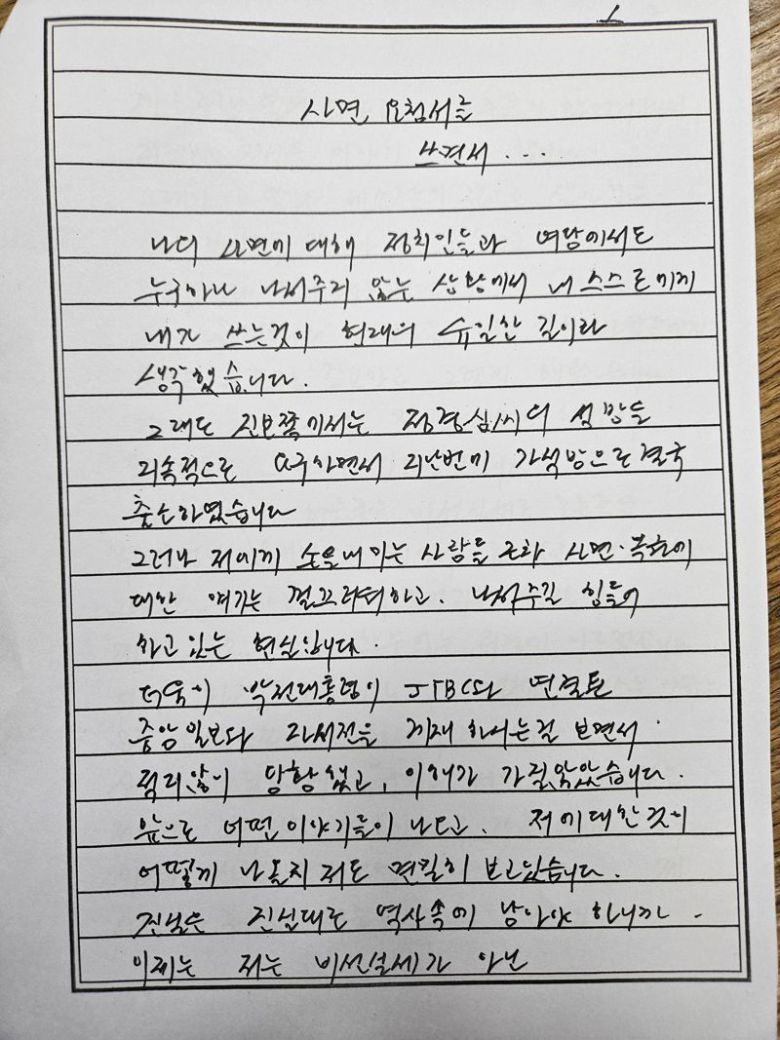 1
사면 요청서를
쓰면서 . . . .
나의 사면에 대해 정치인들과 여당에서도
누구하나 나서주지 않는 상황에서 내 스스로에게
내가 쓰는것이 현재의 유일한 길이라
생각했습니다.
그래도 진보쪽에서는 정경심씨의 석방을
지속적으로 요구하면서 지난번에 가석방으로 결국
출소하였습니다
그러나 저에게 손을내미는 사람들 조차 사면·복권에
대한 얘기는 껄끄러워하고. 나서주길 힘들어
하고 있는 현실입니다.
더욱이 박전대통령이 JTBC와 연결된
중앙일보와 자서전을 게재 하시는걸 보면서
적지않이 당황했고, 이해가 가질않았습니다.
앞으로 어떤 이야기들이 나오고. 저에대한것이
어떻게 나올지 저도 면밀히 보고있습니다.
진실은 진실대로 역사속에 남아야 하니까.
이제는 저는 비선실세가 아닌